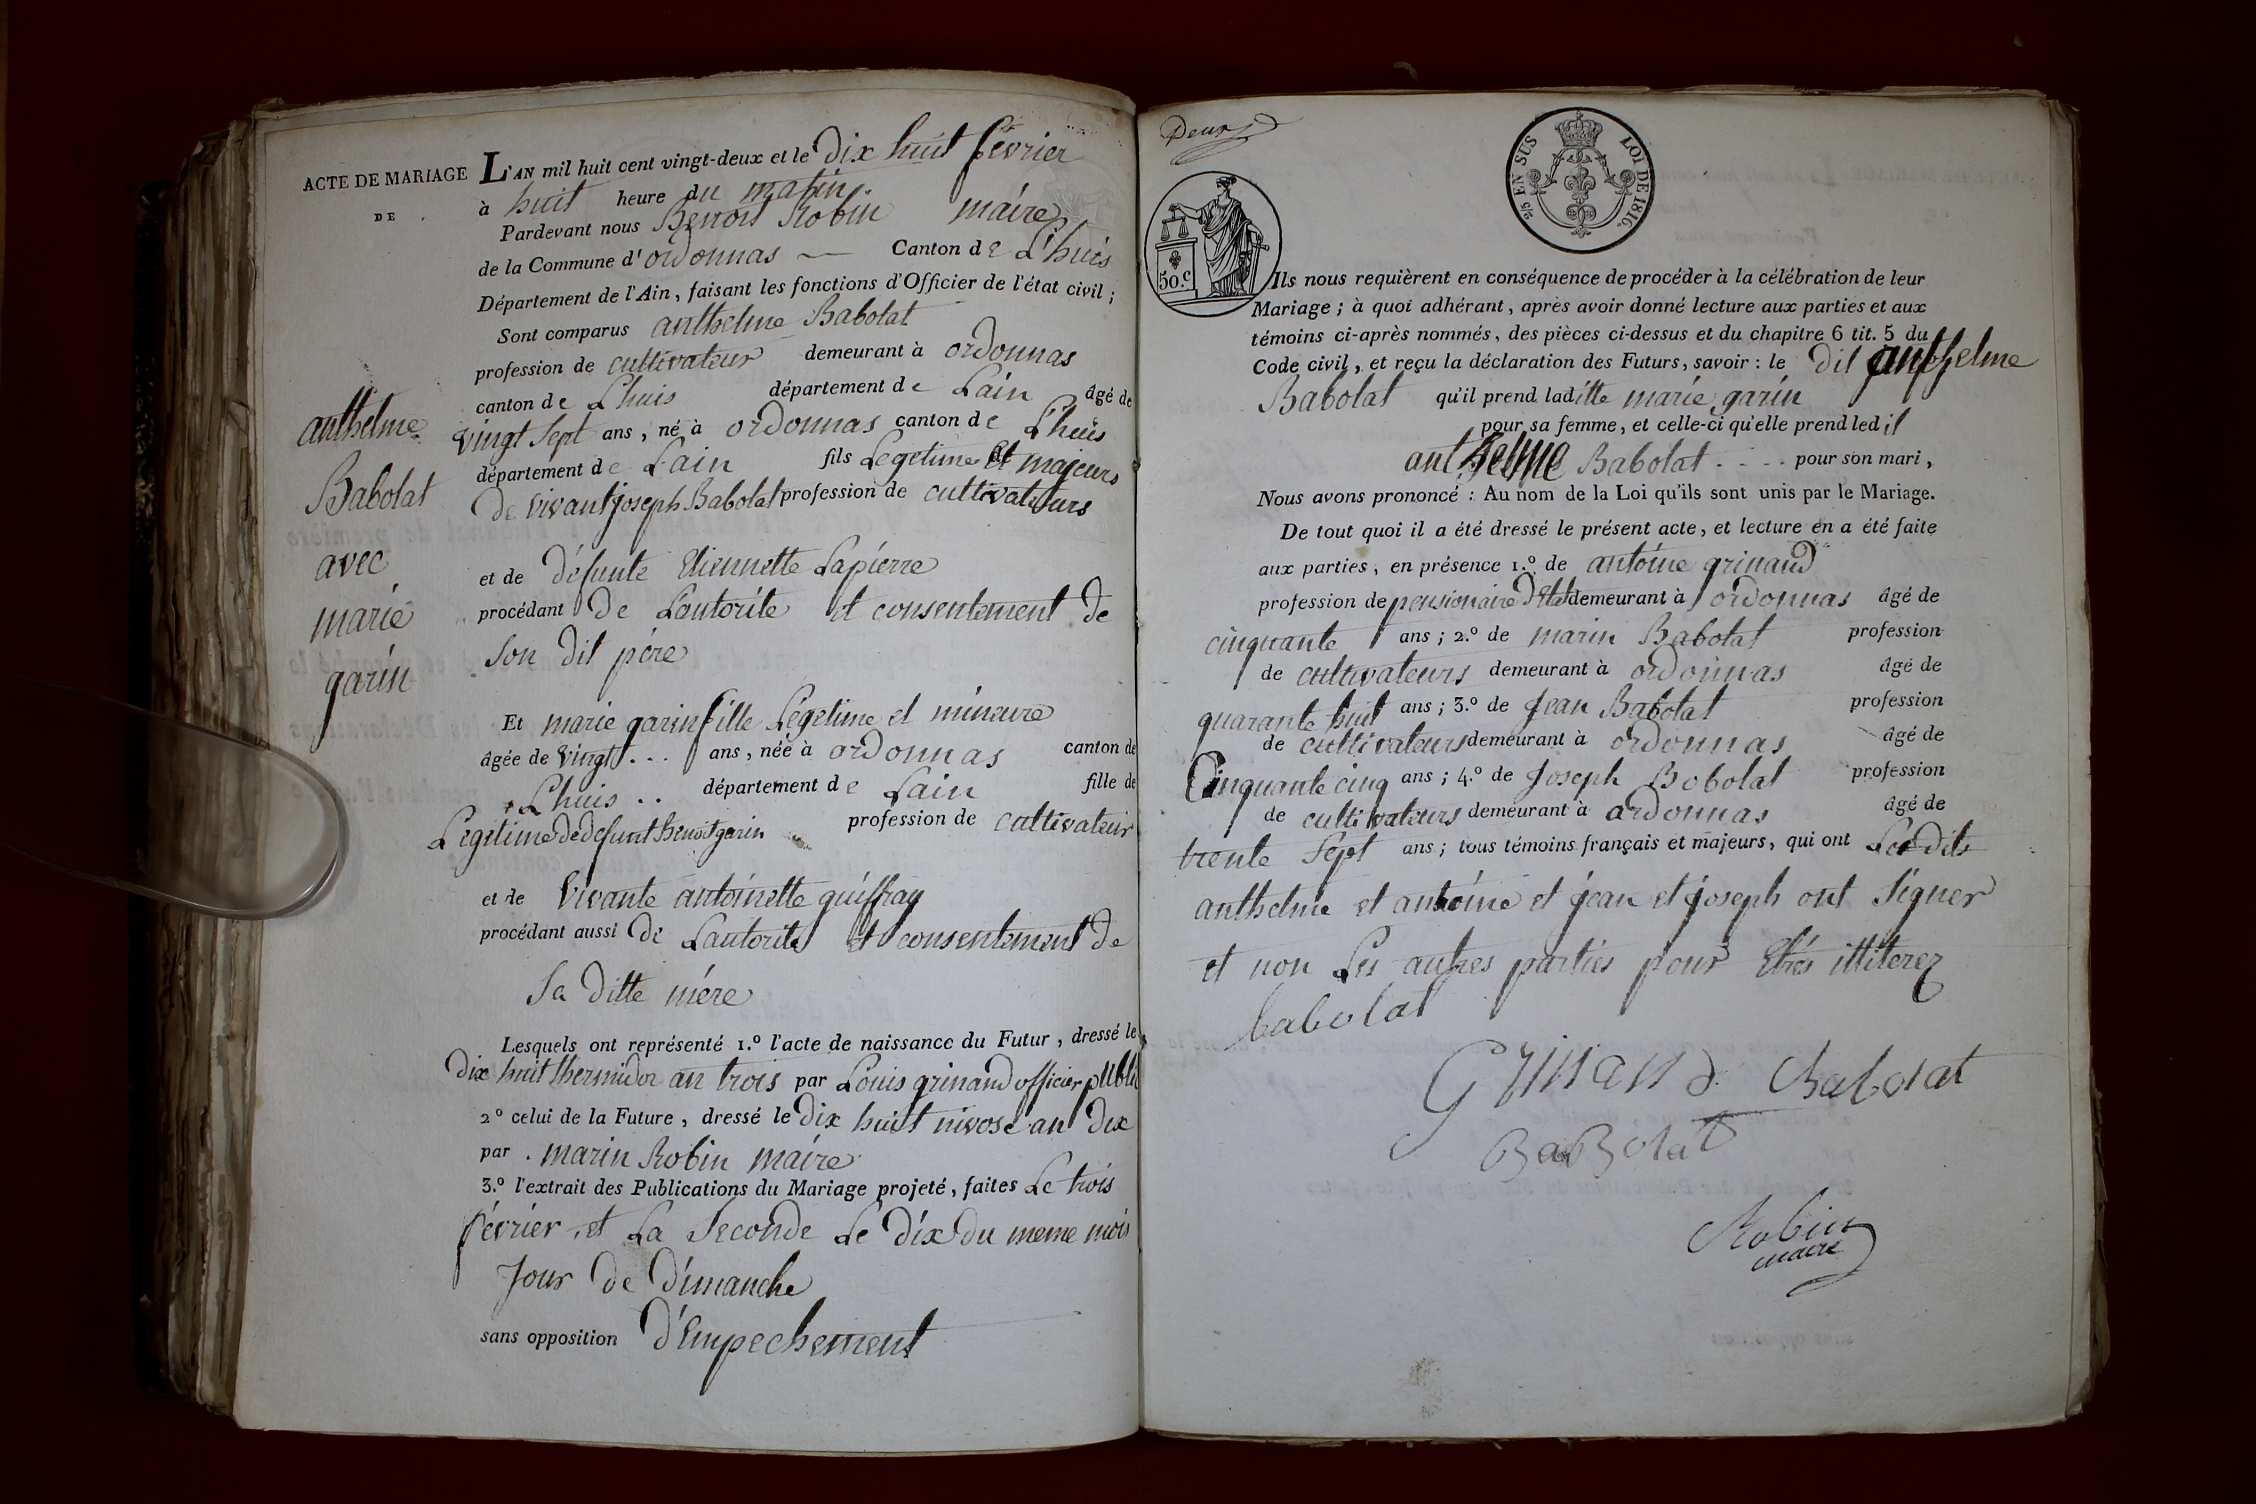 ACTE DE MARIAGE
DE
anthelme
Babolat
avec
marie
garin
L'AN mil huit cent vingt-deux et le Dix huit février
à huit heure du matin.
Pardevant nous Benoit Robin maire
de la Commune d'ordonnas — Canton de L'huis
Département de l'Ain, faisant les fonctions d'Officier de l'état civil ;
Sont comparus anthelme Babolat
profession de cultivateur demeurant à ordonnas
canton de L'huis département de Lain âgé de
vingt Sept ans, né à ordonnas canton de L'huis
département de Lain fils Legetime et majeurs
de vivant joseph Babolat profession de cultivateurs
et de défunte Etiennette Lapierre
procédant De Lautorite et consentement de
Son dit pére
Et marie garin fille Légetime et mineure
âgée de vingt ... ans, née à ordonnas canton de
L'huis .. département de Lain fille de
Legetime de defunt benoit garin profession de cultivateur
et de Vivante antoinette guiffray
procédant aussi De Lautorite et consentement de
Sa Ditte mére
Lesquels ont représenté 1.º l'acte de naissance du Futur, dressé le
Dix huit thermidor an trois par Louis grinand officier publi
2º celui de la Future, dressé le Dix huit nivose an Dix
par . marin Robin maire
3.º l'extrait des Publications du Mariage projeté, faites Le trois
février et La Seconde Le Dix du meme mois
Jour de Dimanche
sans opposition D'Empechement
Deux
2/5 EN SUS LOI DE 1816.
50.c
Ils nous requièrent en conséquence de procéder à la célébration de leur
Mariage ; à quoi adhérant, après avoir donné lecture aux parties et aux
témoins ci-après nommés, des pièces ci-dessus et du chapitre 6 tit. 5 du
Code civil, et reçu la déclaration des Futurs, savoir : le dit anthelme
Babolat qu'il prend laditte marie garin
pour sa femme, et celle-ci qu'elle prend ledit
anthelme Babolat .... pour son mari,
Nous avons prononcé : Au nom de la Loi qu'ils sont unis par le Mariage.
De tout quoi il a été dressé le présent acte, et lecture en a été faite
aux parties, en présence 1.º de antoine grinand
profession de pensionaire demeurant à ordonnas âgé de
cinquante ans ; 2.º de marin Babolat profession
de cultivateurs demeurant à ordonnas âgé de
quarante huit ans ; 3.º de Jean Babolat profession
de cultivateurs demeurant à ordonnas âgé de
Cinquante cinq ans ; 4.º de Joseph Bobolat profession
de cultivateurs demeurant à ordonnas âgé de
trente Sept ans ; tous témoins français et majeurs, qui ont Les dits
anthelme et antoine et jean et joseph ont Signer
et non Les autres parties pour Etrés illiterez
babolat
Grinand Babolat
BaBolat
Robin
maire